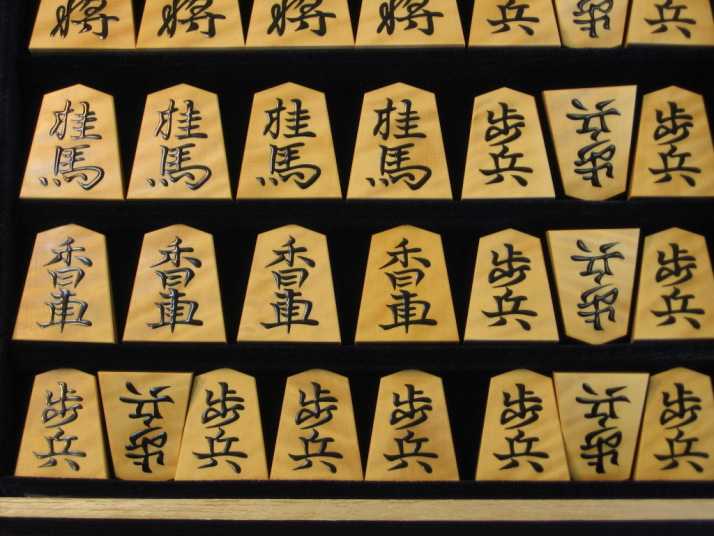 将 将 将 将 兵 歩兵 兵
桂馬 桂馬 桂馬 桂馬 歩兵 歩兵 歩兵
香車 香車 香車 香車 歩兵 歩兵 歩兵
歩兵 歩兵 歩兵 歩兵 歩兵 歩兵 歩兵 歩兵